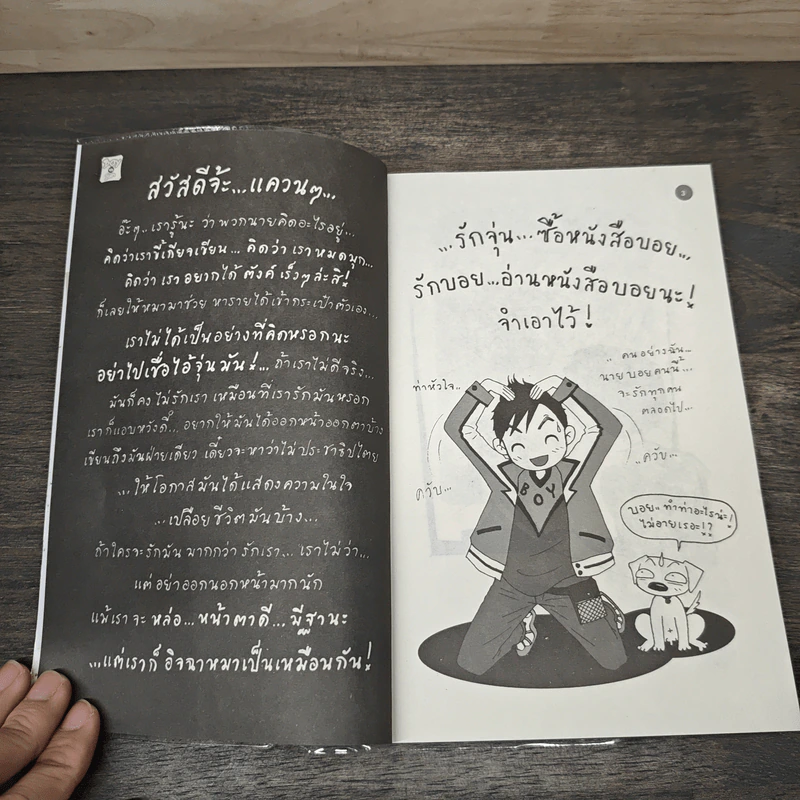 สวัสดีจ้ะ...แควนๆ...
อ๊ะๆ.. เรารู้นะ ว่าพวกนายคิดอะไรอยู่...
คิดว่าเราขี้เกียจเขียน... คิดว่า เราหมดมุก...
คิดว่า เราอยากได้ ตังค์ เร็วๆล่ะสิ!
ก็เลยให้หมามาช่วย หารายได้เข้ากระเป๋าตัวเอง...
เราไม่ได้เป็นอย่างที่คิดหรอกนะ
อย่าไปเชื่อไอ้จุ่นมัน!... ถ้าเราไม่ดีจริง...
มันก็คงไม่รักเรา เหมือนที่เรารักมันหรอก
เราก็แอบหวังดี้... อยากให้มันได้ออกหน้าออกตาบ้าง
เขียนถึงมันฝ่ายเดียว เดี๋ยวจะหาว่าไม่ประชาธิปไตย
...ให้โอกาสมันได้แสดงความในใจ
...เปลือยชีวิตมันบ้าง...
ถ้าใครจะรักมัน มากกว่า รักเรา... เราไม่ว่า...
แต่อย่าออกนอกหน้ามากนัก
แม้เราจะ หล่อ...หน้าตาดี...มีฐานะ
...แต่เราก็ อิจฉาหมาเป็นเหมือนกัน!
3
...รักจุ่น...ซื้อหนังสือบอย...
รักบอย...อ่านหนังสือบอยนะ!
จำเอาไว้!
.. คนอย่างฉัน...
นายบอยคนนี้...
จะรักทุกคน
ตลอดไป...
ท่าหัวใจ..
ควับ...
..ควับ...
BOY
บอย.. ทำท่าอะไรน่ะ!
ไม่อายเรอะ!?